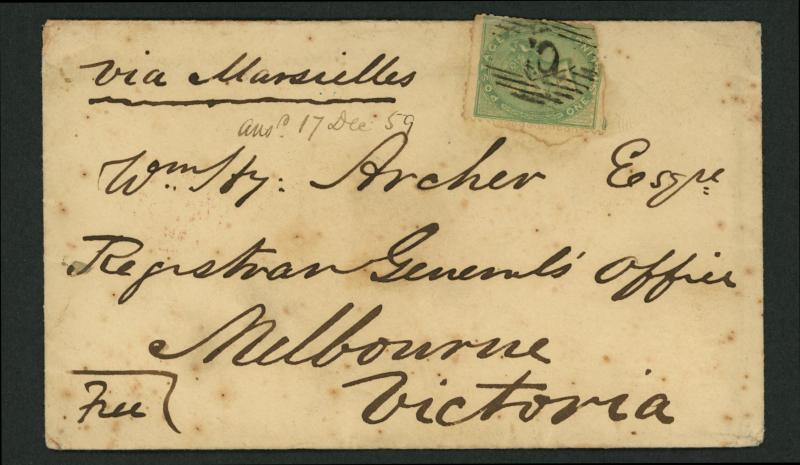 via Marsielles
POSTAGE ONE
2
ansd. 17 Dec 59
Wm. Hy: Archer Esqre
Registrar General's Office
Melbourne
Victoria
Free